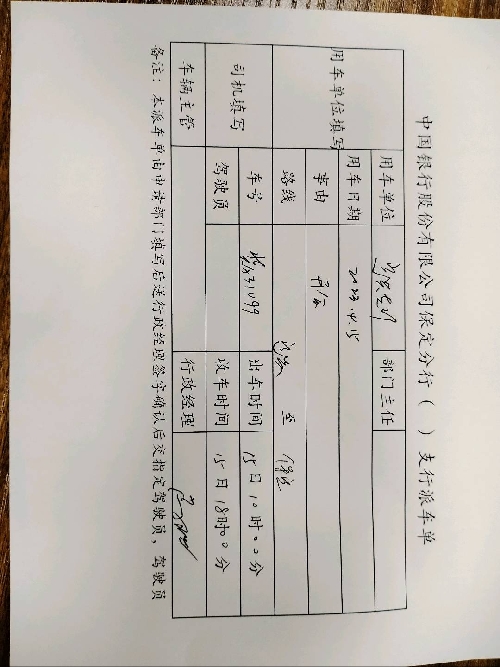 中国银行股份有限公司保定分行（ ）支行派车单
用车单位填写
用车单位
部门主任
用车日期 2023.4.15
事由 办公
路线 至 保定
司机填写
车号 出车时间 15日10时00分
驾驶员 收车时间 15日18时00分
车辆主管 行政经理
备注：本派车单由申请部门填写后送行政经理签字确认后交指定驾驶员，驾驶员